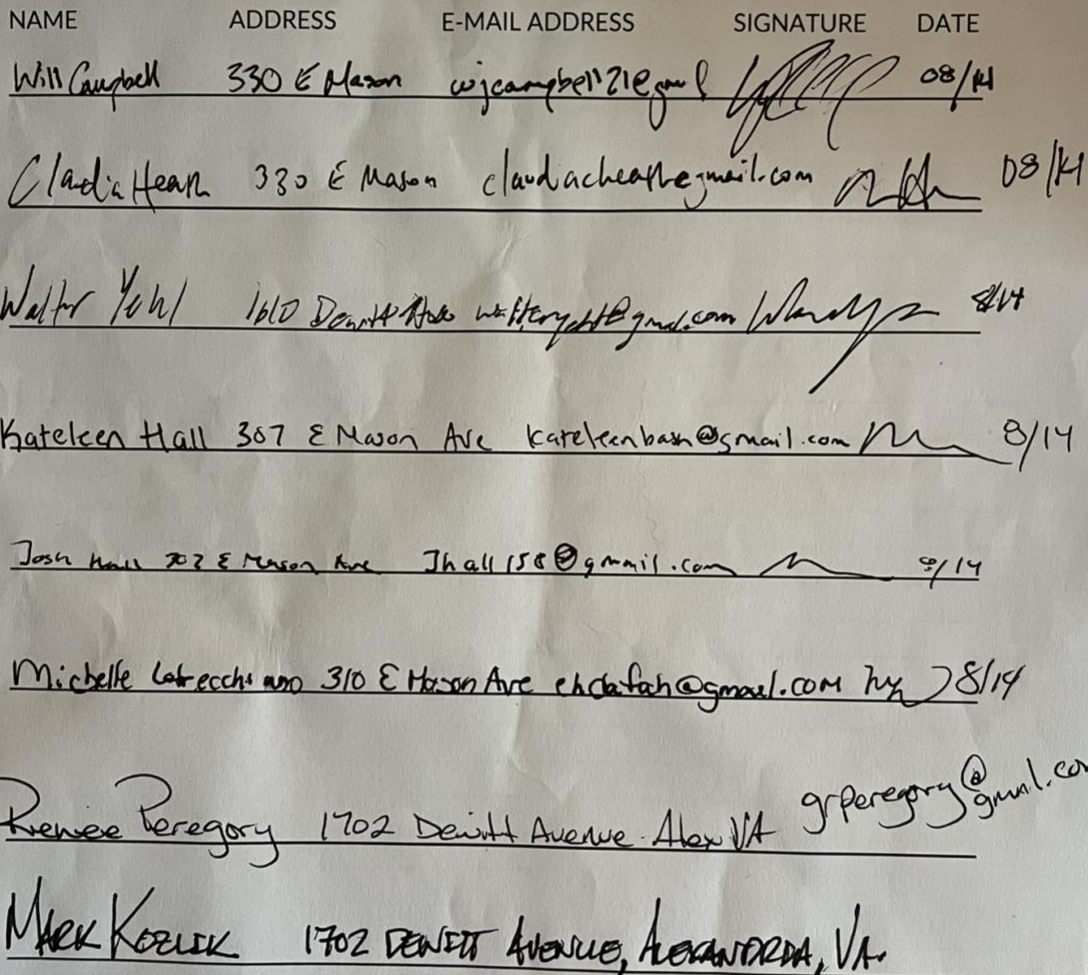 NAME ADDRESS E-MAIL ADDRESS SIGNATURE DATE
Will Campbell 330 E Mason wjcampbell21@gmail 08/14
Claudia Hearn 330 E Mason claudiachearn@gmail.com 08/14
Walter Yehl 1610 Dewitt Ave walteryehl@gmail.com 8/14
Kateleen Hall 307 E Mason Ave kateleenbash@gmail.com 8/14
Josh Hall 307 E Mason Ave Jhall158@gmail.com 8/14
Michelle 310 E Mason Ave ehdafah@gmail.com 8/14
Renee Peregory 1702 Dewitt Avenue Alex VA grperegory@gmail.com
MARK KOZLIK 1702 DEWITT AVENUE, ALEXANDRIA, VA.